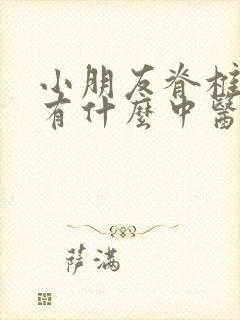 小朋友脊柱
有什麼中醫
萨满